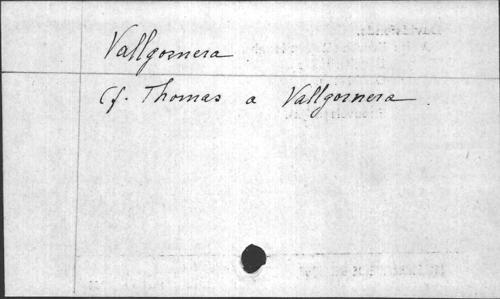 Vallgornera
Cf. Thomas a Vallgornera.